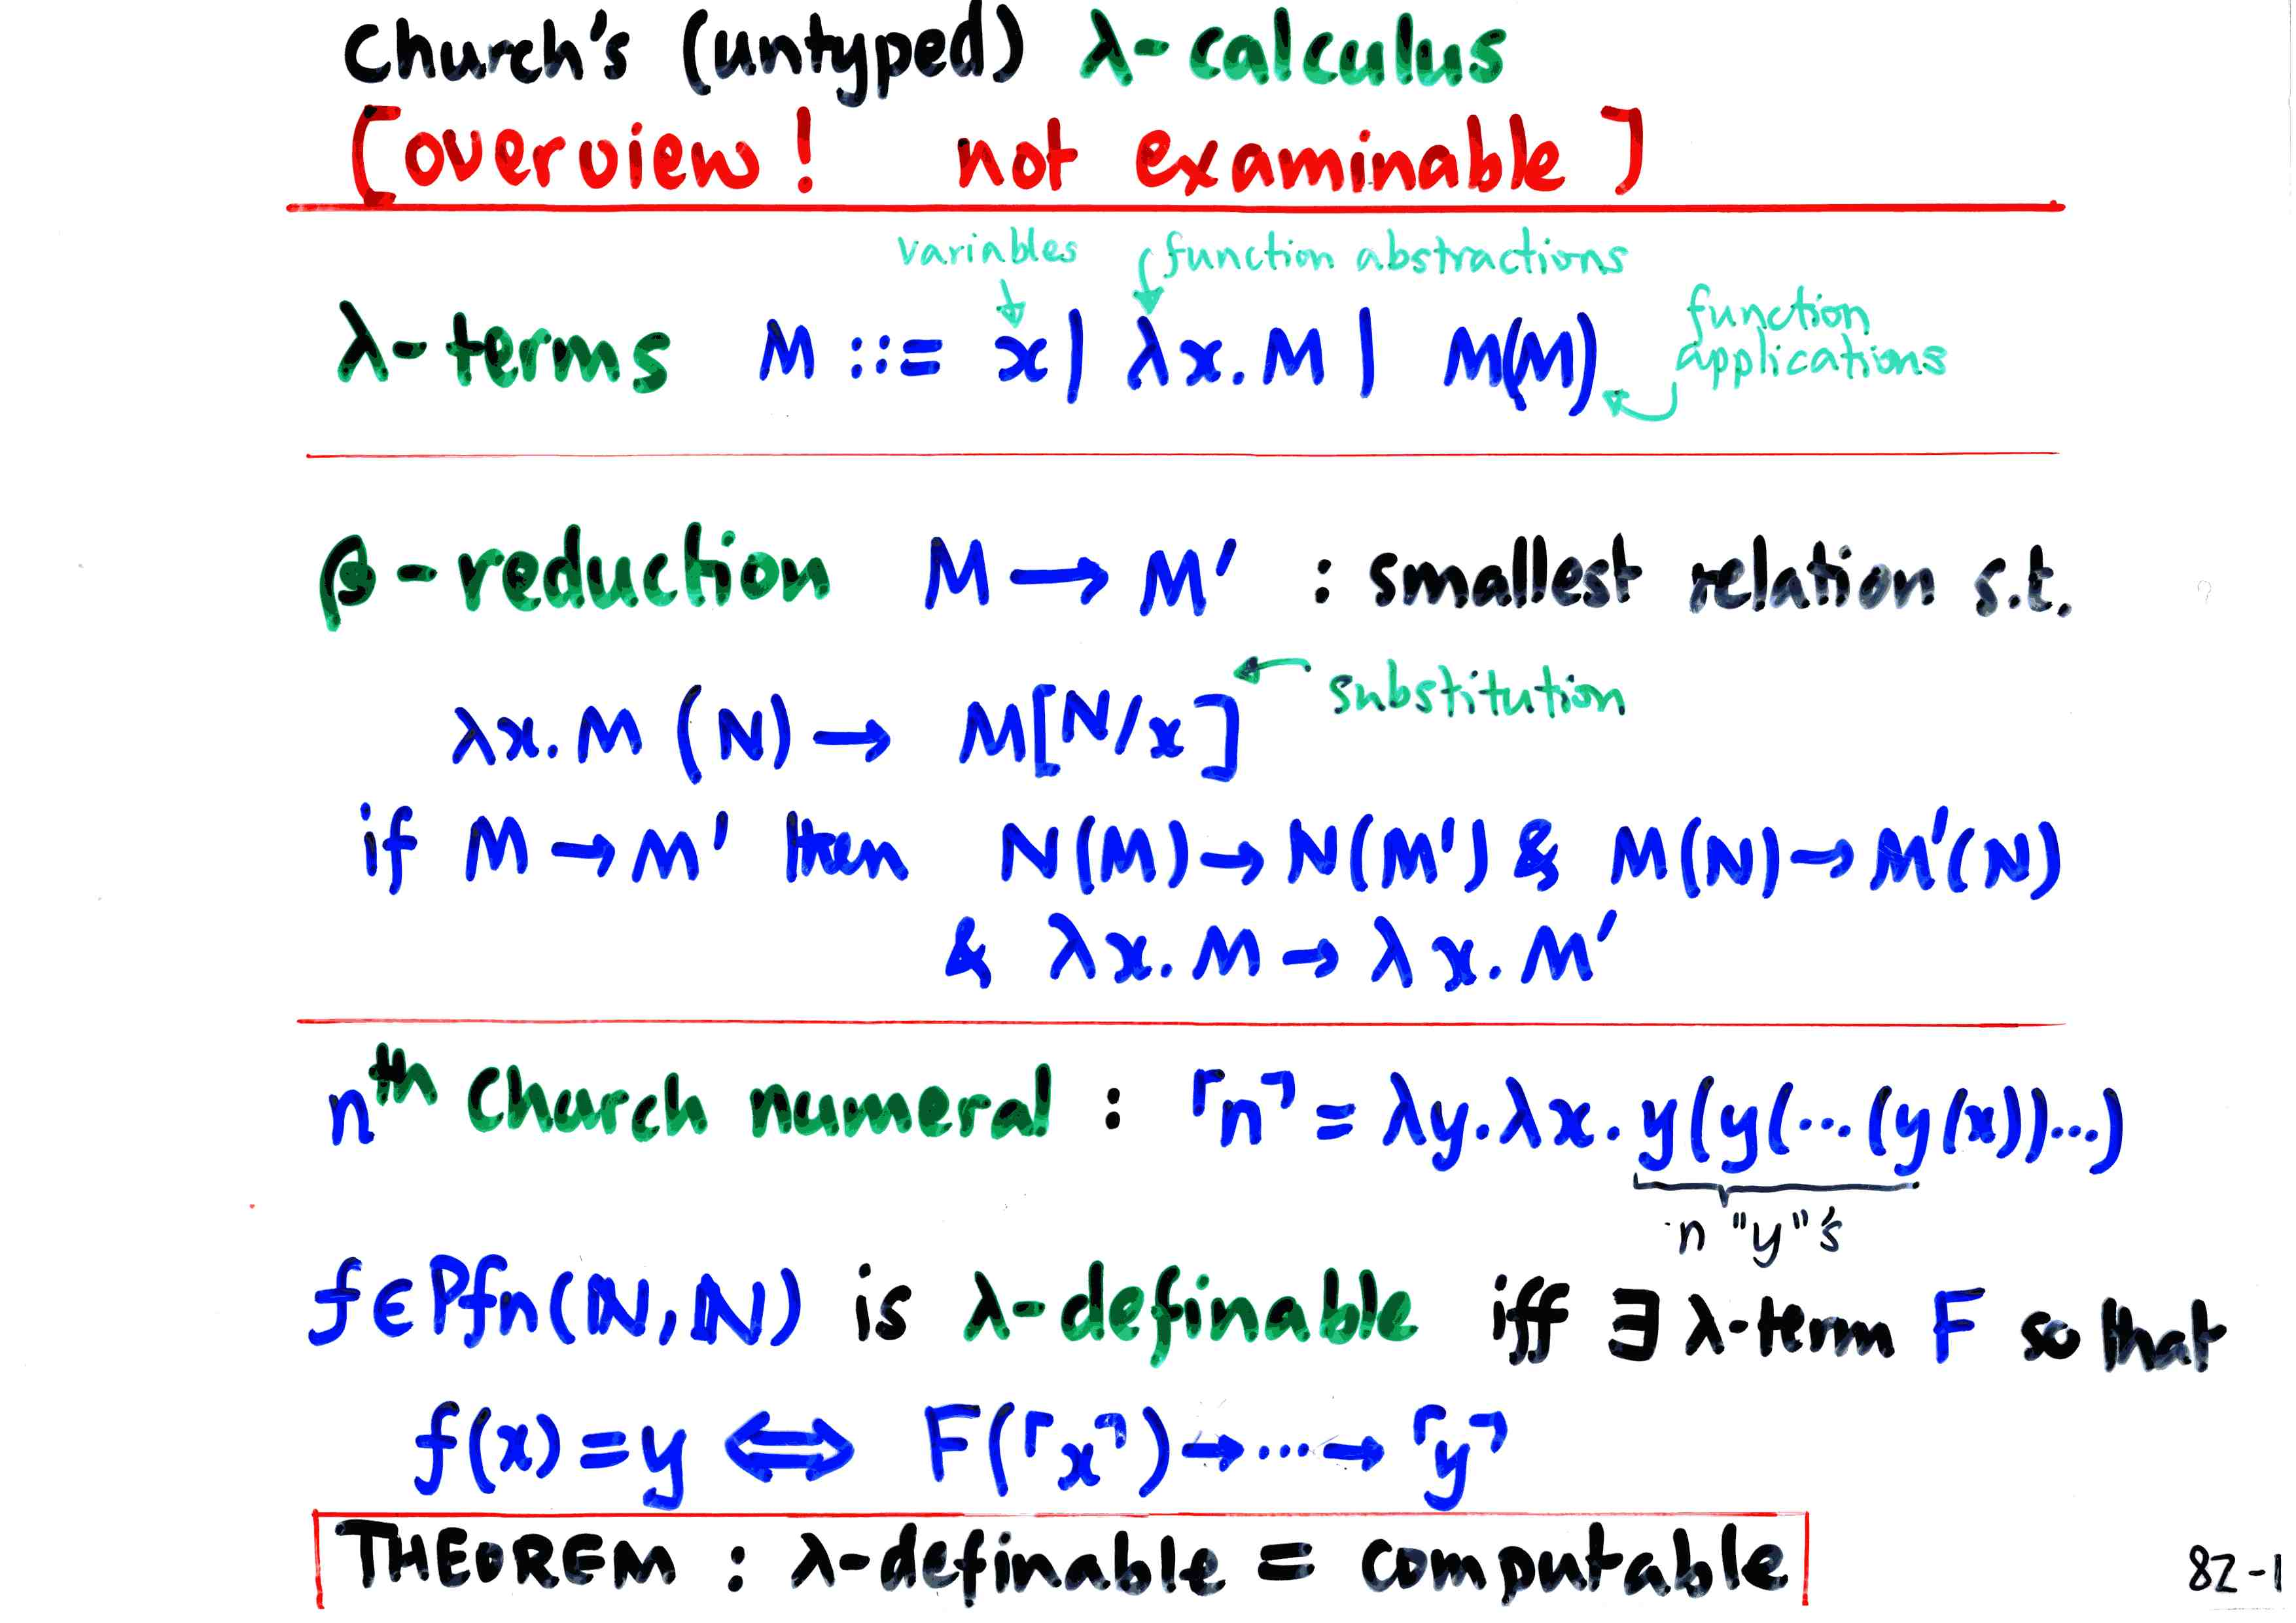 Church's (untyped) λ-calculus
[overview! not examinable]
variables function abstractions
λ-terms M ::= x | λx.M | M(M) function applications
β-reduction M → M' : smallest relation s.t.
λx.M (N) → M[N/x] substitution
if M → M' then N(M) → N(M') & M(N) → M'(N)
& λx.M → λx.M'
nth Church numeral : ⌜n⌝ = λy.λx.y(y(...(y(x))...)
n "y"'s
f∈Pfn(ℕ,ℕ) is λ-definable iff ∃ λ-term F so that
f(x)=y ⟺ F(⌜x⌝)→...→ ⌜y⌝
THEOREM : λ-definable = computable
82-1